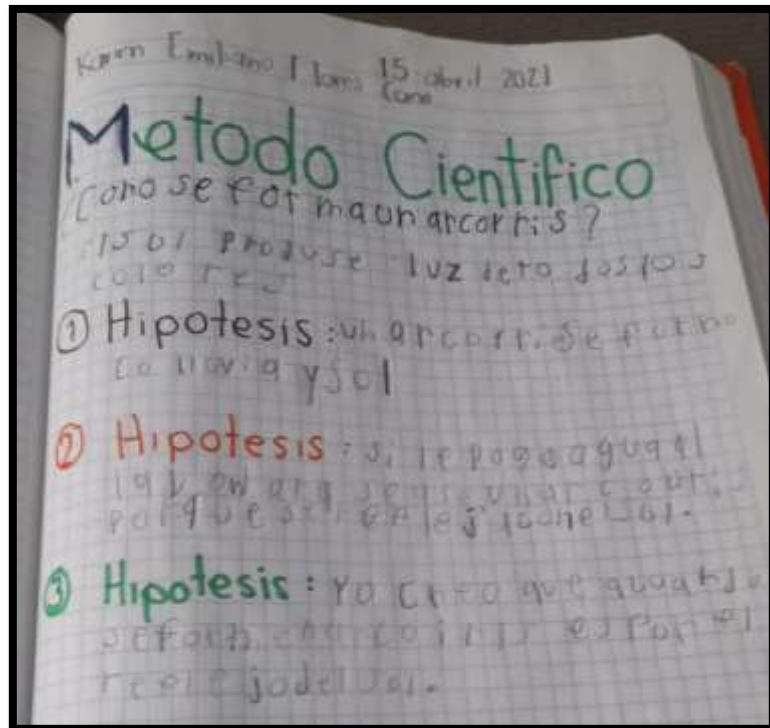 Emiliano Flores 15 abril 2021
Cano
Metodo Cientifico
Como se forma un arcorris?
el sol produse luz de todos los
colores
① Hipotesis: un arcorri se form
co lluvia y sol
② Hipotesis: si le pogo agua al
porque se refleja cone sol.
③ Hipotesis: Yo creo que
se form es por el
reflejo del sol.